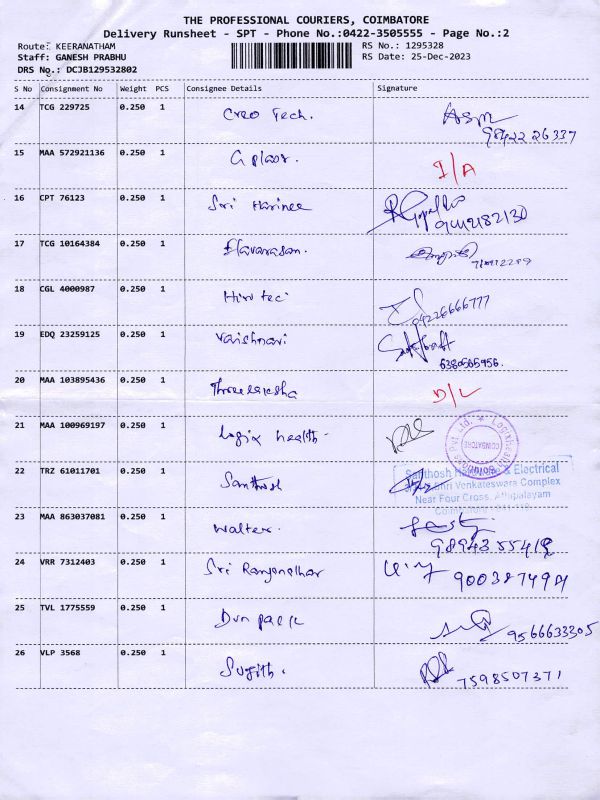 THE PROFESSIONAL COURIERS, COIMBATORE
Delivery Runsheet - SPT - Phone No.:0422-3505555 - Page No.:2
Route: KEERANATHAM RS No.: 1295328
Staff: GANESH PRABHU RS Date: 25-Dec-2023
DRS No.: DCJB129532802
S No Consignment No Weight PCS Consignee Details Signature
14 TCG 229725 0.250 1 Creo Tech.
9842226337
15 MAA 572921136 0.250 1 I/A
16 CPT 76123 0.250 1 Sri Harinee
17 TCG 10164384 0.250 1 Elavarasan.
18 CGL 4000987 0.250 1 Hiwtec
94226666777
19 EDQ 23259125 0.250 1 Vaishnavi
6380505956.
20 MAA 103895436 0.250 1 D/L
21 MAA 100969197 0.250 1 Logix health -
22 TRZ 61011701 0.250 1 Santhosh
Santhosh & Electrical
Shri Venkateswara Complex
Near Four Cross, Athipalayam
23 MAA 863037081 0.250 1 Walter.
24 VRR 7312403 0.250 1 Sri
25 TVL 1775559 0.250 1 Dun pack
9566633305
26 VLP 3568 0.250 1 Sujith.
7598507371